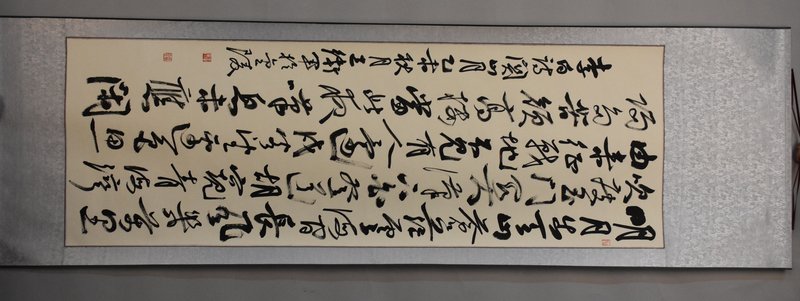 明月出天山蒼茫雲海間長風幾萬里
吹度玉門關漢下白登道胡窺青海灣
由來征戰地不見有人還戍客望邊邑思
歸多苦顏高樓當此夜嘆息未應閑
李白詩關山月乙未秋月王於金陵